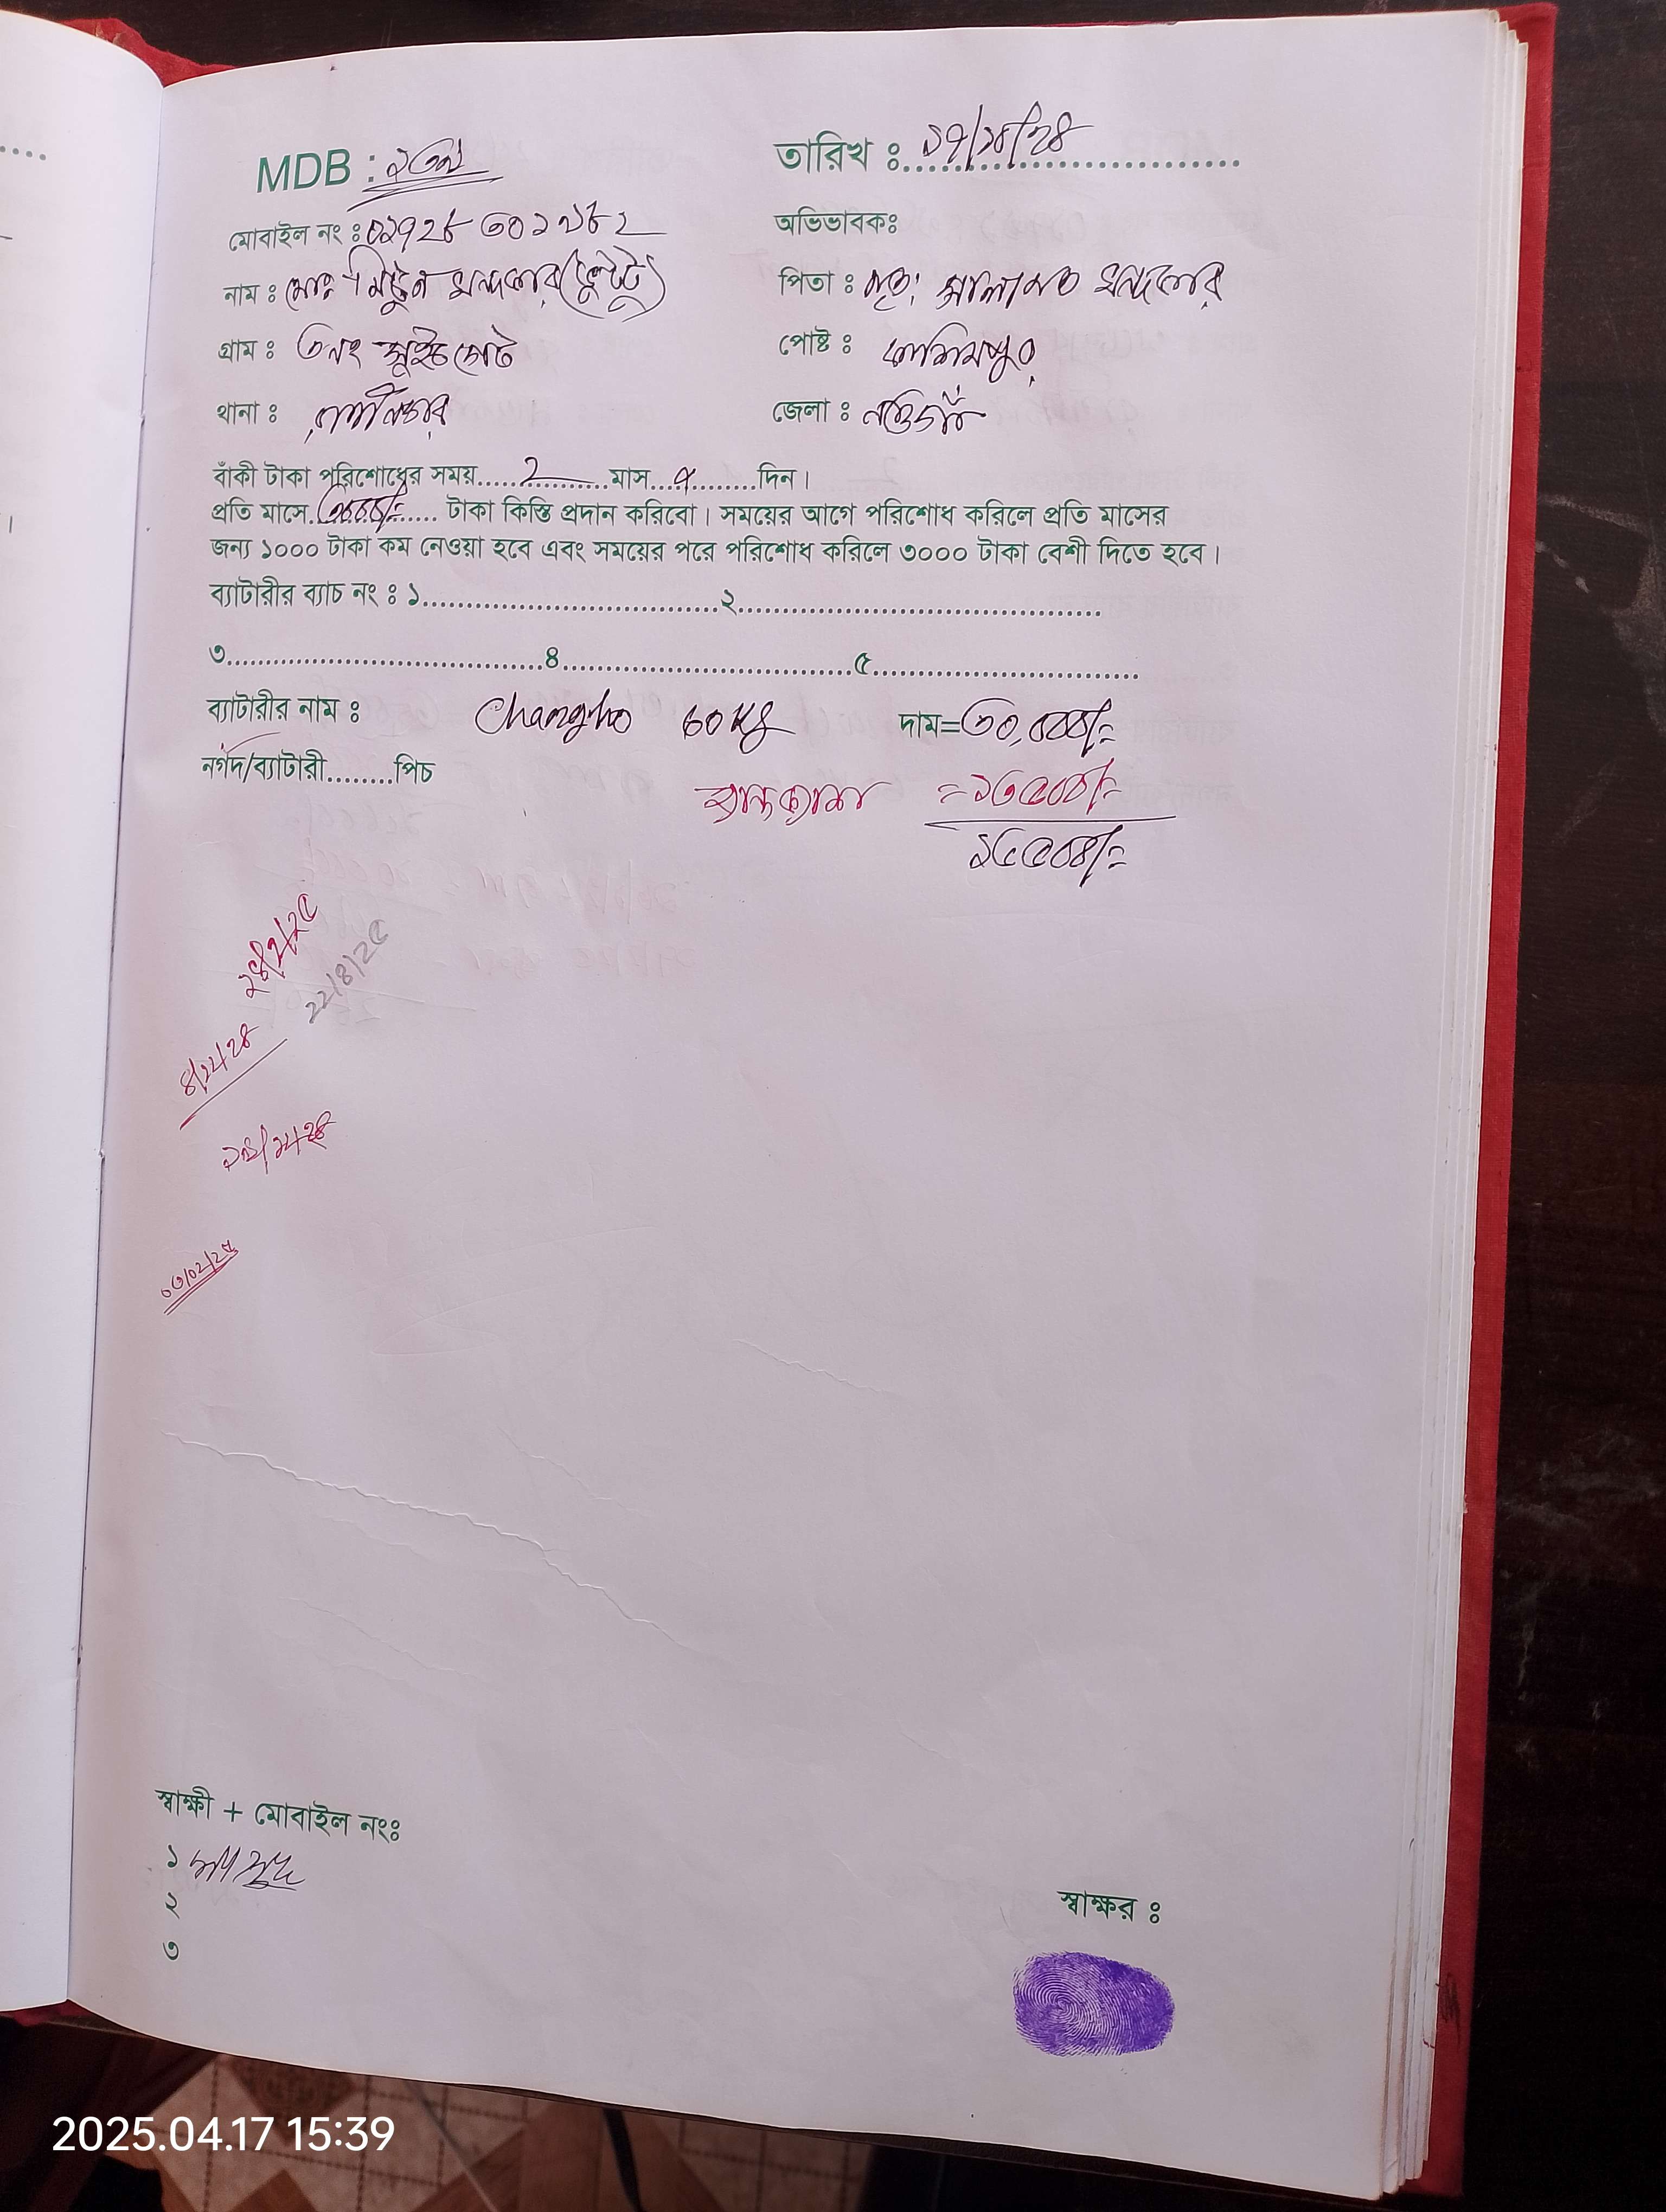 MDB : ২৩৯ তারিখ ঃ ১৭/১০/২৪
মোবাইল নং ঃ ০১৭২৮ ৩০১ ২৮২ অভিভাবকঃ
নাম ঃ মোঃ মিঠুন খন্দকার পিতা ঃ মৃতঃ সালামত খন্দকার
গ্রাম ঃ ৩নং সুইচগেট পোষ্ট ঃ কাশিমপুর
থানা ঃ রানীনগর জেলা ঃ নওগাঁ
বাঁকী টাকা পরিশোধের সময়......২......মাস...৭.......দিন।
প্রতি মাসে........ টাকা কিস্তি প্রদান করিবো। সময়ের আগে পরিশোধ করিলে প্রতি মাসের
জন্য ১০০০ টাকা কম নেওয়া হবে এবং সময়ের পরে পরিশোধ করিলে ৩০০০ টাকা বেশী দিতে হবে।
ব্যাটারীর ব্যাচ নং ঃ ১....................................২.............................................
৩.......................................৪....................................৫.................................
ব্যাটারীর নাম ঃ 60 Kg দাম=৩০,০০০/=
নগদ/ব্যাটারী........পিচ
=১৩৫০০/=
২৪/২/২৫
২২/৪/২৫
৪/১২/২৪
০৩/০২/২৫
স্বাক্ষী + মোবাইল নংঃ
১
২
৩
স্বাক্ষর ঃ
2025.04.17 15:39